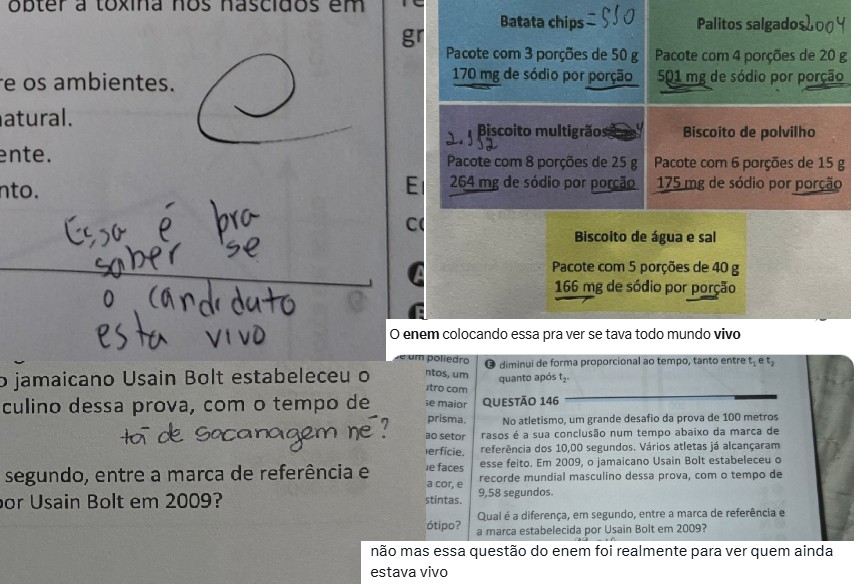 obter a toxina nos nascidos em
re os ambientes.
natural.
ente.
nto.
Essa é pra
saber se
o candidato
esta vivo
gr
Batata chips = 510
Pacote com 3 porções de 50 g
170 mg de sódio por porção
Palitos salgados 2004
Pacote com 4 porções de 20 g
501 mg de sódio por porção
2.112 Biscoito multigrãos
Pacote com 8 porções de 25 g
264 mg de sódio por porção
Biscoito de polvilho
Pacote com 6 porções de 15 g
175 mg de sódio por porção
Biscoito de água e sal
Pacote com 5 porções de 40 g
166 mg de sódio por porção
O enem colocando essa pra ver se tava todo mundo vivo
o jamaicano Usain Bolt estabeleceu o
culino dessa prova, com o tempo de
tá de sacanagem né?
segundo, entre a marca de referência e
por Usain Bolt em 2009?
e um poliedro
ntos, um
utro com
se maior
prisma.
ao setor
perfície.
ue faces
a cor, e
stintas.
ótipo?
E diminui de forma proporcional ao tempo, tanto entre t₁ e t₂
quanto após t₂.
QUESTÃO 146
No atletismo, um grande desafio da prova de 100 metros
rasos é a sua conclusão num tempo abaixo da marca de
referência dos 10,00 segundos. Vários atletas já alcançaram
esse feito. Em 2009, o jamaicano Usain Bolt estabeleceu o
recorde mundial masculino dessa prova, com o tempo de
9,58 segundos.
Qual é a diferença, em segundo, entre a marca de referência e
a marca estabelecida por Usain Bolt em 2009?
não mas essa questão do enem foi realmente para ver quem ainda
estava vivo